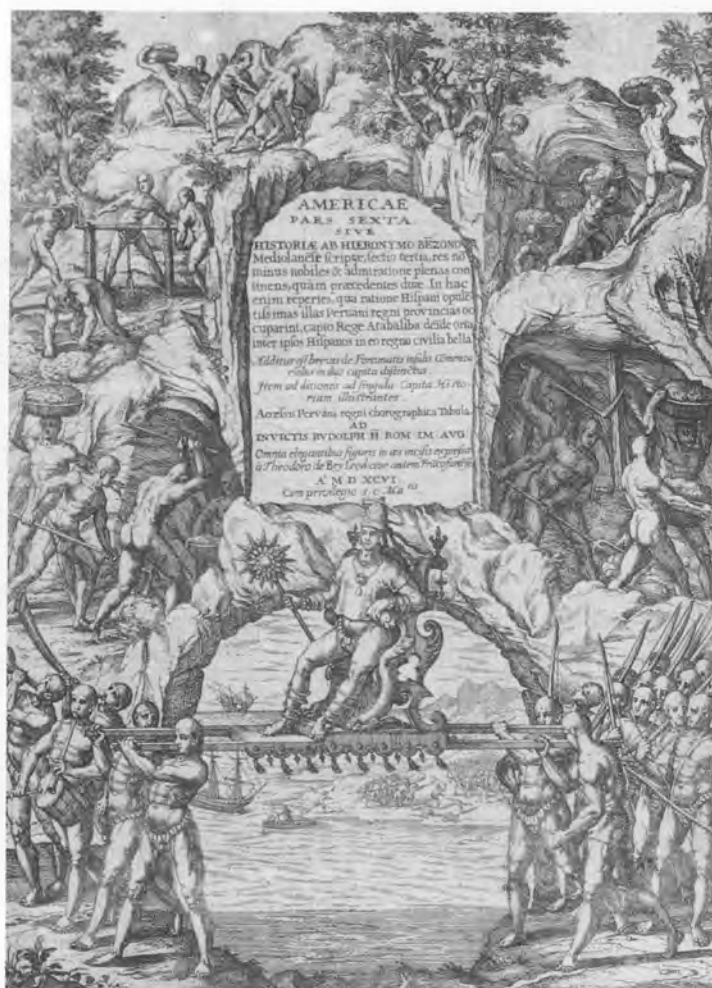 AMERICAE
PARS SEXTA.
SIVE
HISTORIÆ AB HIERONYMO BĒZONO
Mediolanēse scriptæ, sectio tertia, res nō
minus nobiles & admiratione plenas con
tinens, quàm præcedentes duæ. In hac
enim reperies, qua ratione Hispani opulē
tissimas illas Peruäni regni provincias oc
cuparint, capto Rege Atabaliba: deīde orta
inter ipsos Hispanos in eo regno civilia bella
Additus est brevis de Fortunatis insulis Cōmenta
riolus in duo capita distinctus.
Item additiones ad singula Capita Histo-
riam illustrantes.
Accessit Peruäni regni chorographica Tabula.
AD
INVICTIS. RVDOLPH. II. ROM. IM. AVG.
Omnia elegantibus figuris in æs incisis expressa
à Theodoro de Bry Leod. cive autem Frācofurtensi
Aº M D XCVI
Cum privilegio S. C. Ma.tis